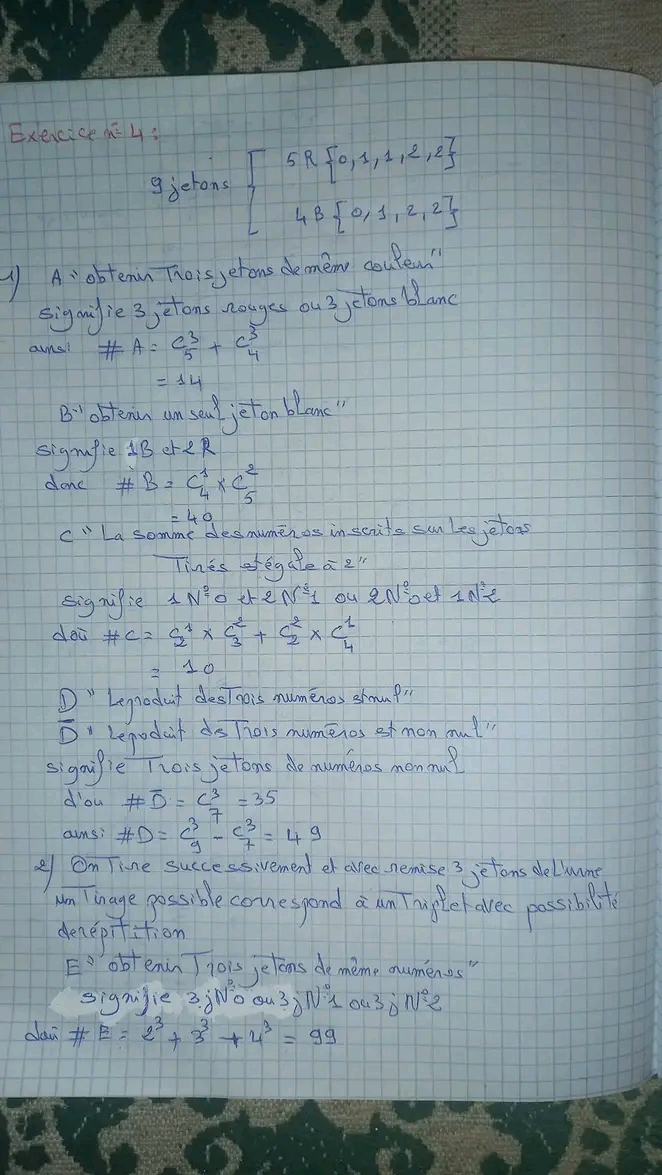 Exercice n° 4 :
9 jetons [ 5R {0, 1, 1, 2, 2}
4B {0, 1, 2, 2}
1) A "obtenir Trois jetons de même couleur"
signifie 3 jetons rouges ou 3 jetons blanc
ainsi # A = C₅³ + C₄³
= 14
B "obtenir un seul jeton blanc"
signifie 1B et 2R
donc # B = C₄¹ × C₅²
= 40
C "La somme des numéros inscrits sur les jetons
Tirés est égale à 2"
signifie 1 N°0 et 2 N°1 ou 2N°0 et 1N°2
d'où # C = C₂¹ × C₃² + C₂² × C₄¹
= 10
D "Le produit des Trois numéros est nul"
D̅ "Le produit des Trois numéros est non nul"
signifie Trois jetons de numéros non nul
d'ou # D̅ = C₇³ = 35
ainsi # D = C₉³ - C₇³ = 49
2) On Tire successivement et avec remise 3 jetons de L'urne
Un Tirage possible correspond à un Triplet avec possibilité
de répitition
E "obtenir Trois jetons de même numéros"
signifie 3jN°0 ou 3jN°1 ou 3jN°2
d'où # E = 2³ + 3³ + 4³ = 99